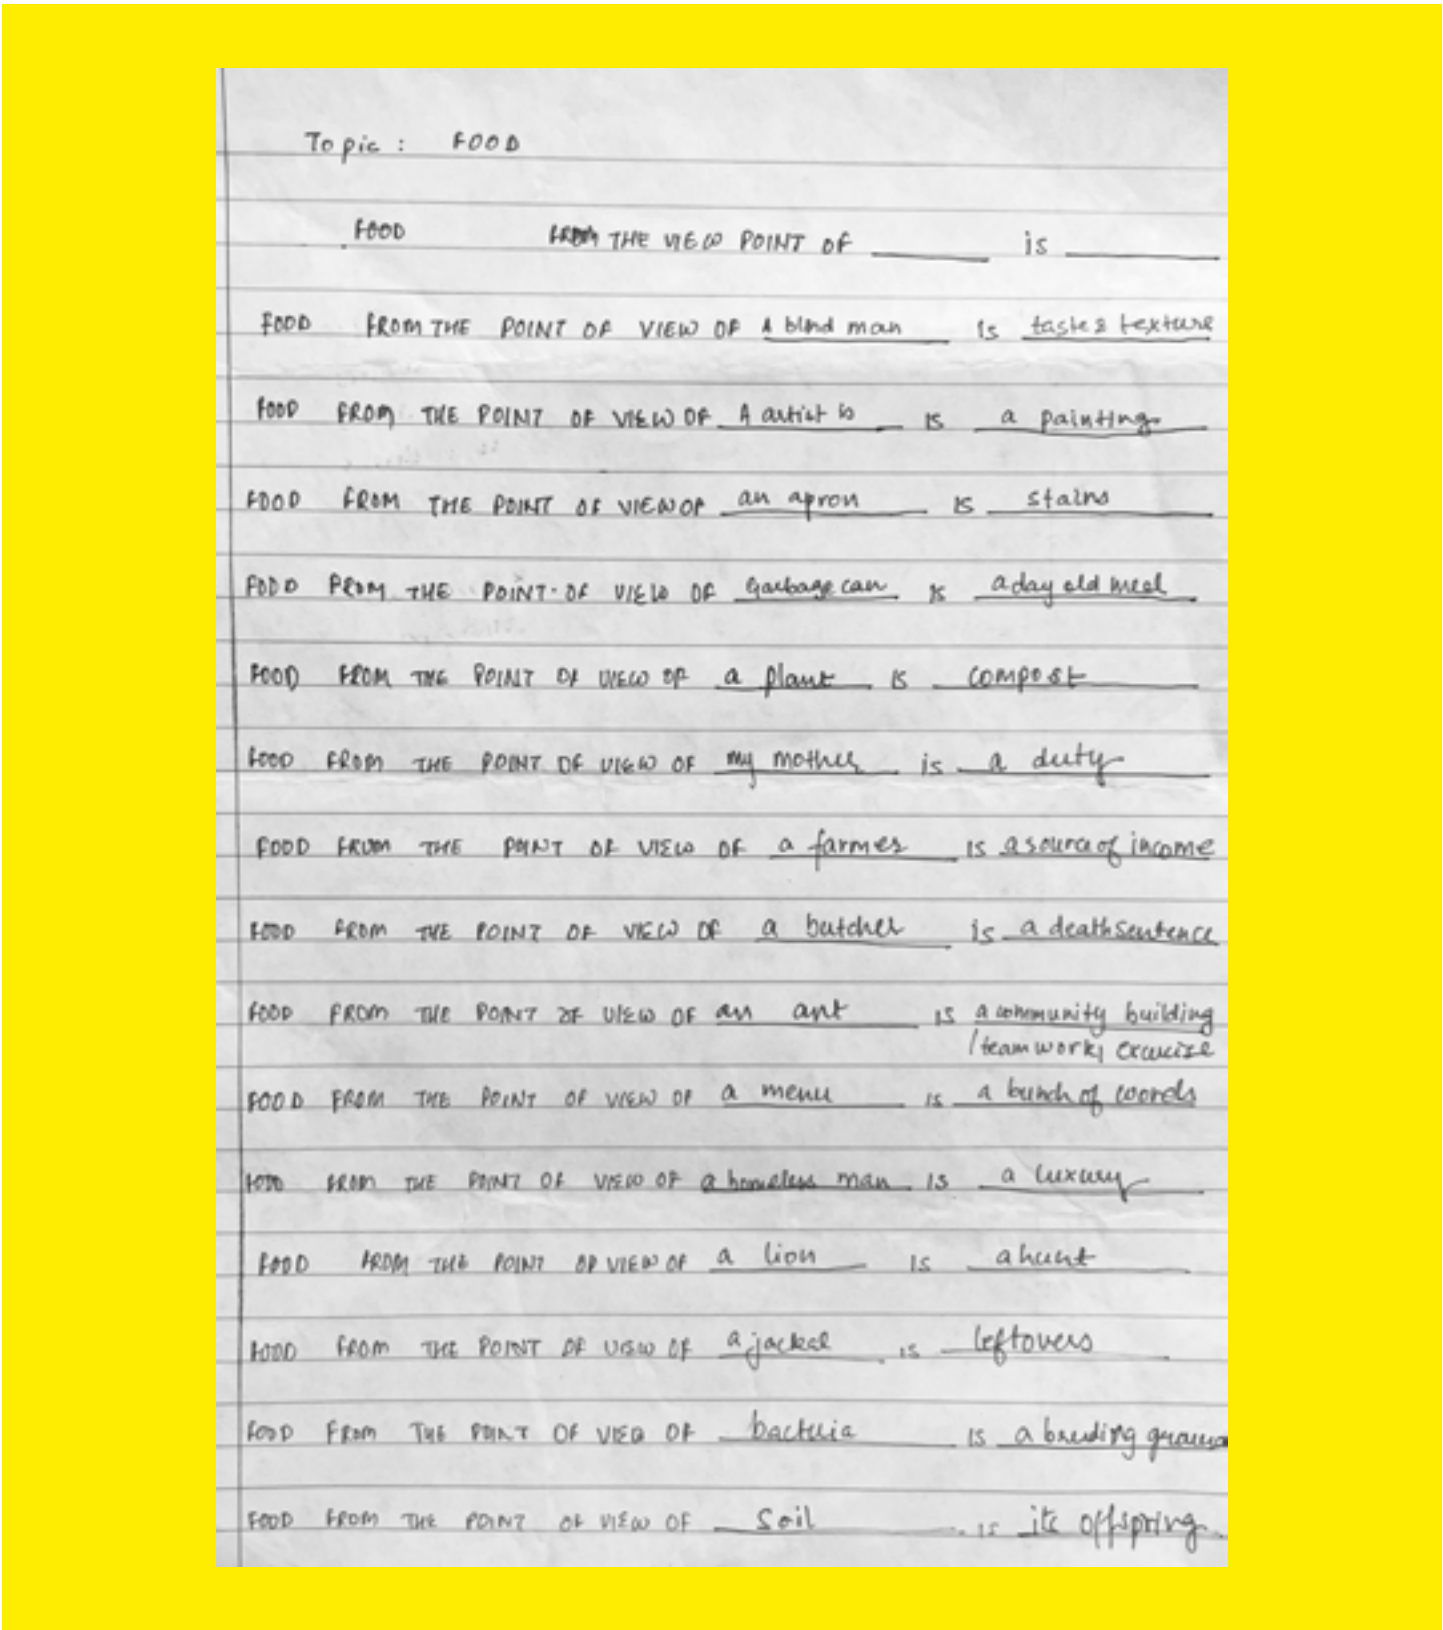 Topic : FOOD
FOOD FROM THE VIEW POINT OF ______ is ______
FOOD FROM THE POINT OF VIEW OF A blind man is taste & texture
FOOD FROM THE POINT OF VIEW OF A artist is is a painting
FOOD FROM THE POINT OF VIEW OF an apron is stains
FOOD FROM THE POINT OF VIEW OF Garbage can is a day old meal
FOOD FROM THE POINT OF VIEW OF a plant is compost
FOOD FROM THE POINT OF VIEW OF my mother is a duty
FOOD FROM THE POINT OF VIEW OF a farmer is a source of income
FOOD FROM THE POINT OF VIEW OF a butcher is a death sentence
FOOD FROM THE POINT OF VIEW OF an ant is a community building
/ team work exercise
FOOD FROM THE POINT OF VIEW OF a menu is a bunch of words
FOOD FROM THE POINT OF VIEW OF a homeless man is a luxury
FOOD FROM THE POINT OF VIEW OF a lion is a hunt
FOOD FROM THE POINT OF VIEW OF a jackal is leftovers
FOOD FROM THE POINT OF VIEW OF bacteria is a breeding ground
FOOD FROM THE POINT OF VIEW OF Soil is its offspring.